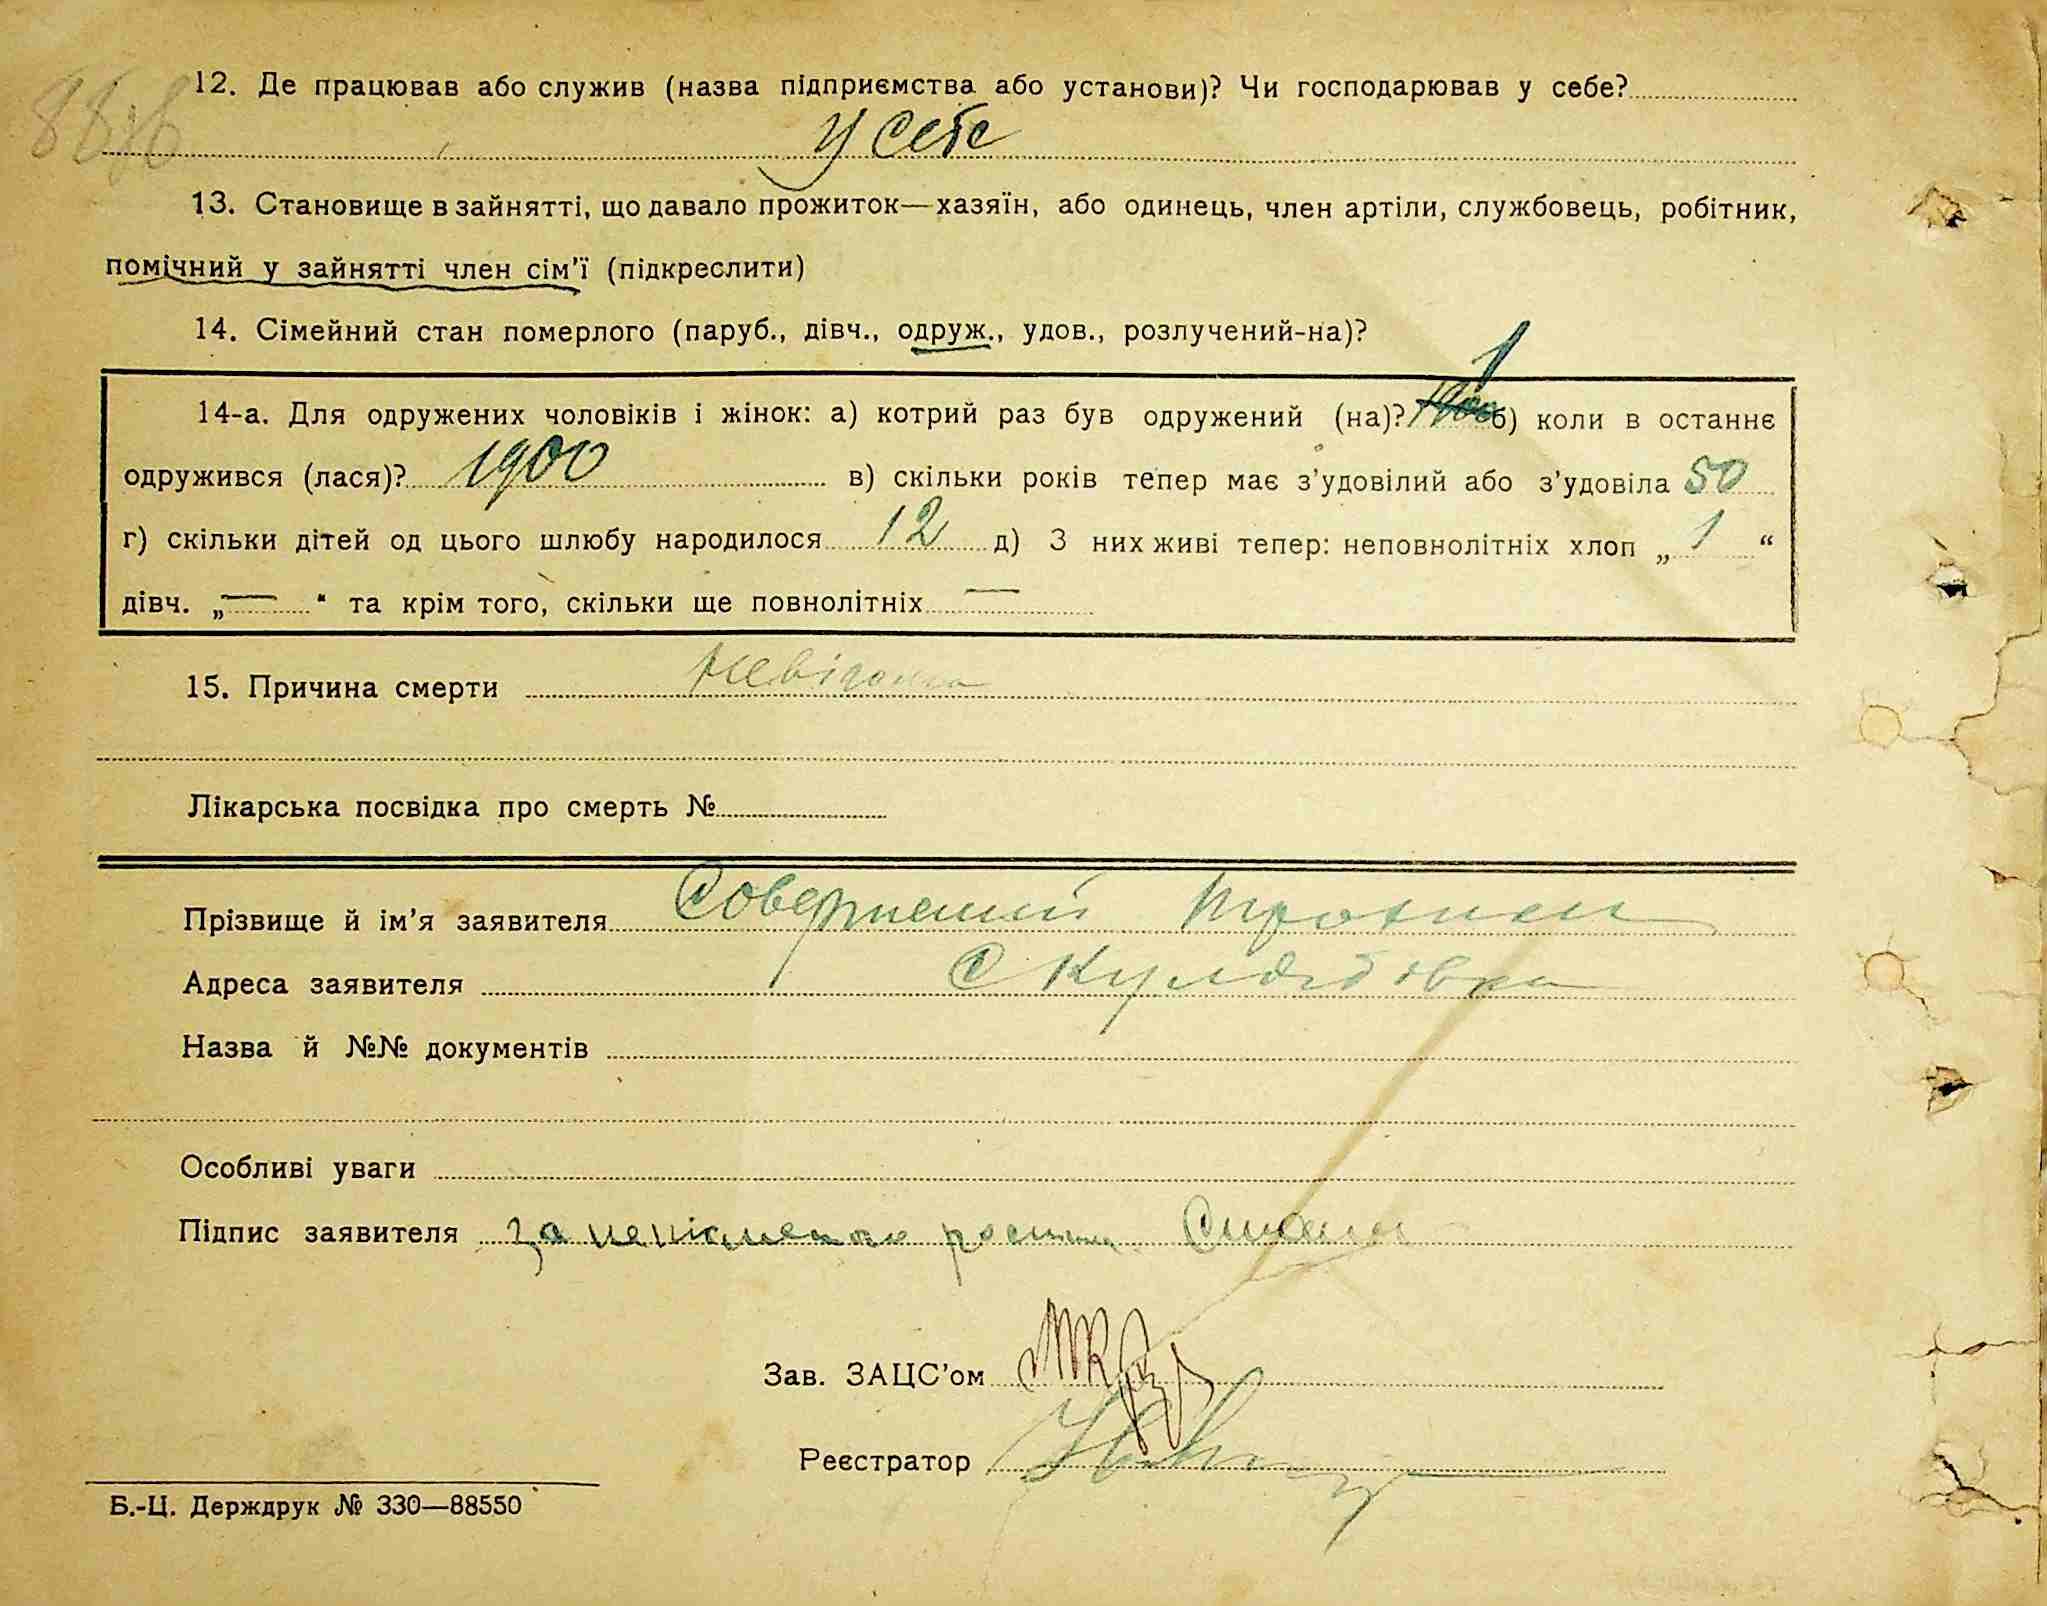 12. Де працював або служив (назва підприємства або установи)? Чи господарював у себе?
у себе
13. Становище в зайнятті, що давало прожиток—хазяїн, або одинець, член артіли, службовець, робітник,
помічний у зайнятті член сім’ї (підкреслити)
14. Сімейний стан померлого (паруб., дівч., одруж., удов., розлучений-на)?
14-а. Для одружених чоловіків і жінок: а) котрий раз був одружений (на)? 1 б) коли в останнє
одружився (лася)? 1900 в) скільки років тепер має з’удовілий або з’удовіла 50
г) скільки дітей од цього шлюбу народилося 12 д) З них живі тепер: неповнолітніх хлоп „ 1 “
дівч. „ — “ та крім того, скільки ще повнолітніх —
15. Причина смерти невідома
Лікарська посвідка про смерть №
Прізвище й ім’я заявителя
Адреса заявителя С
Назва й №№ документів
Особливі уваги
Підпис заявителя за
Зав. ЗАЦС’ом
Реєстратор
Б.-Ц. Держдрук № 330—88550